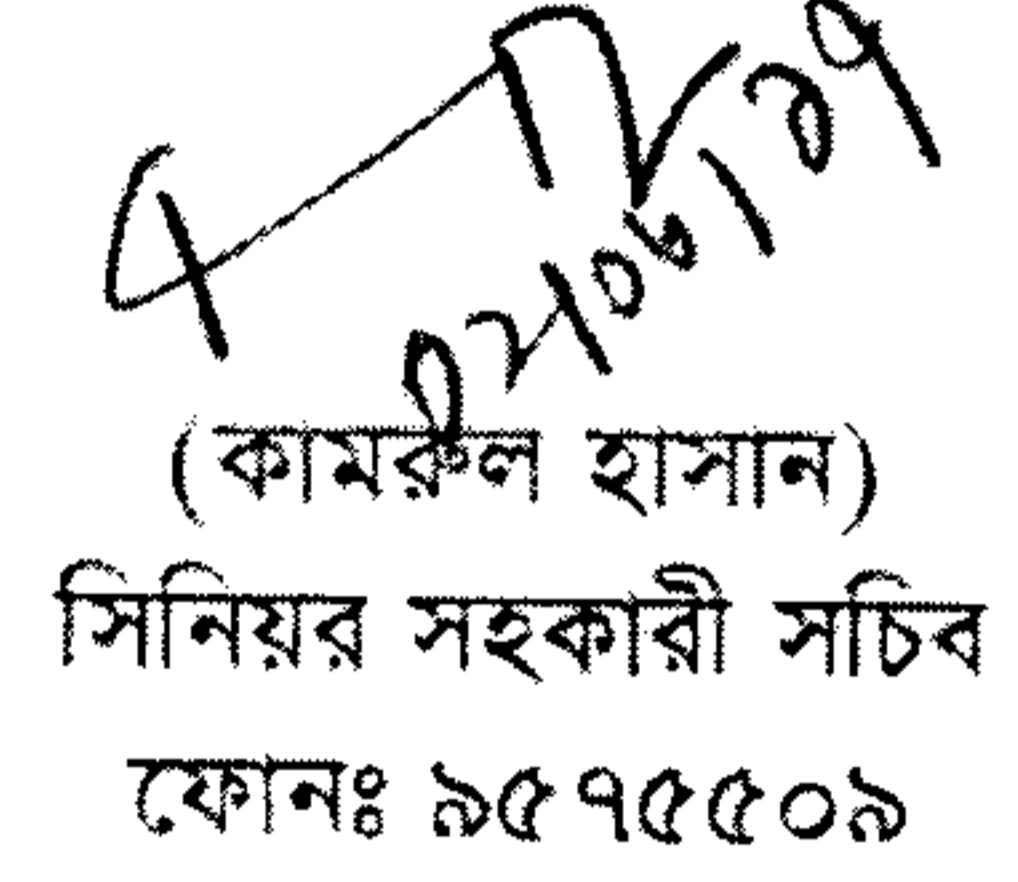 (কামরুল হাসান)
সিনিয়র সহকারী সচিব
ফোনঃ ৯৫৭৫৫০৯